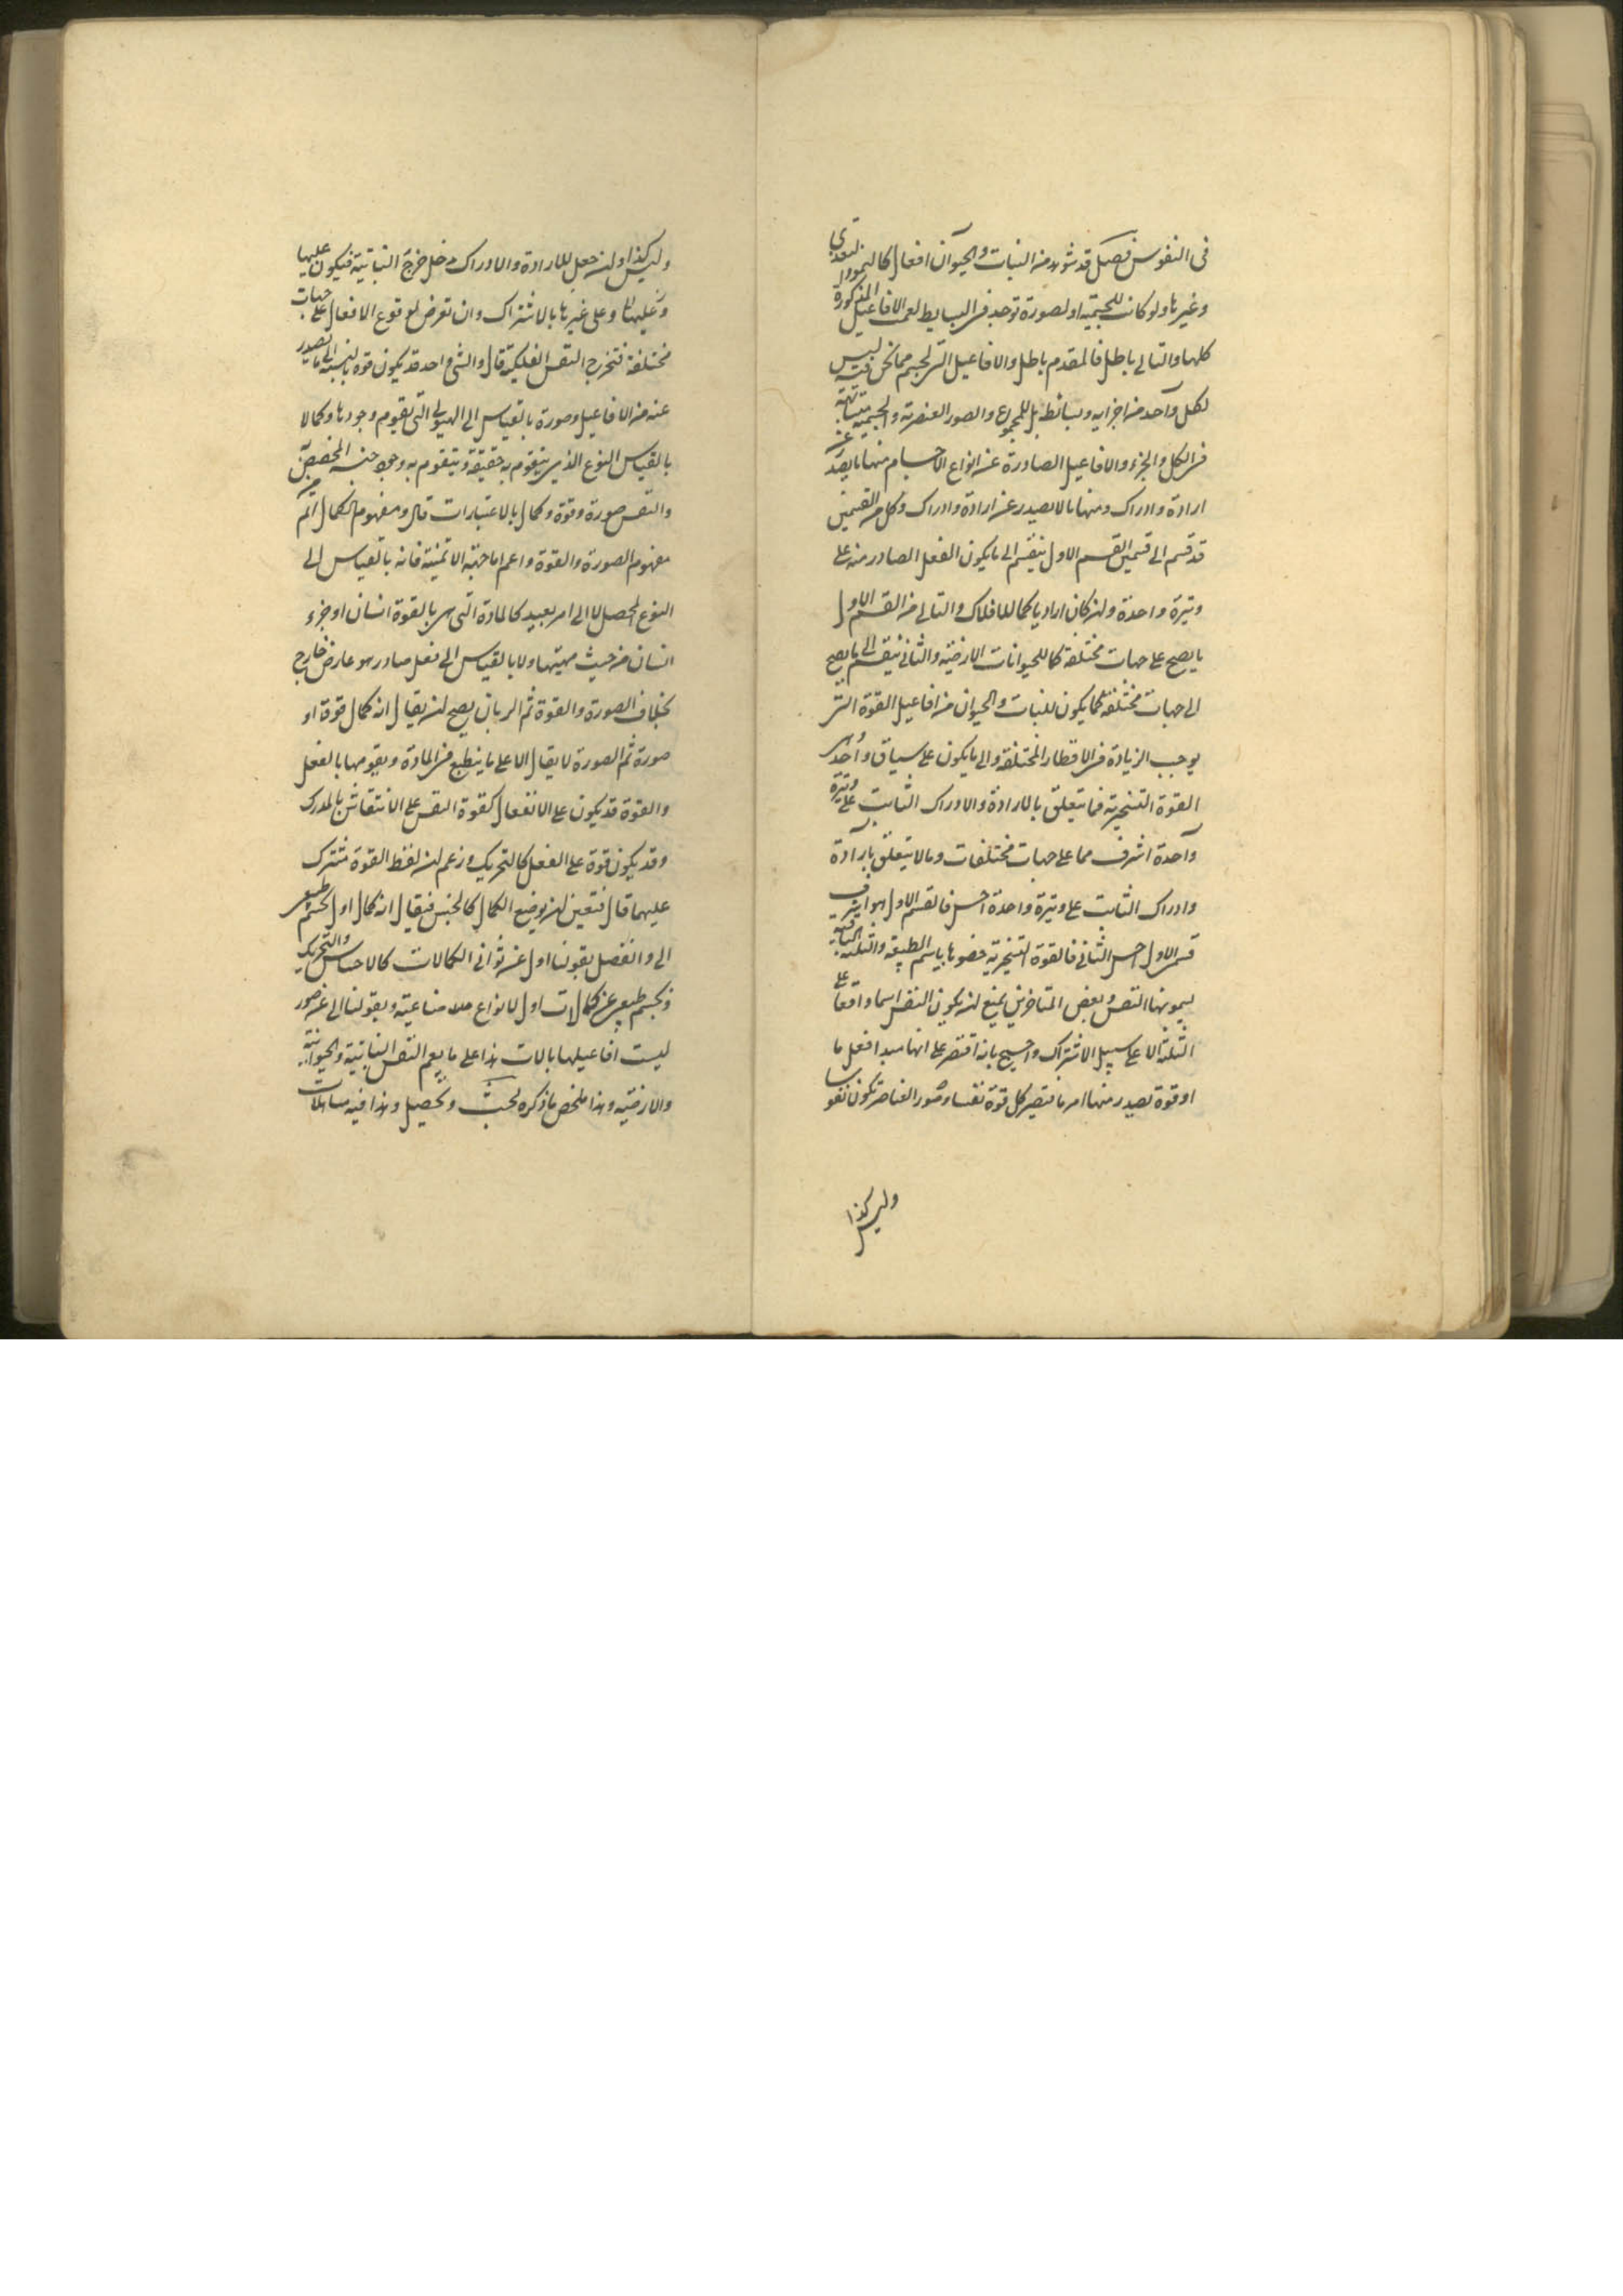 فى النفوس فصل قد شوهد من النبات والحيوان افعال كالنمو والتغذى
وغيرها ولو كانت للجسمية او لصورة توجد فى البسايط لعمت الافاعيل المذكورة
كلها والتالى باطل فالمقدم باطل والافاعيل التى لجسم مما نحن فيه ليس
لكل واحد من اجزايه وبسائطه بل للمجموع والصور العنصرية والجسمية متشابهة
فى الكل والجزء والافاعيل الصادرة عن انواع الاجسام منها ما يصدر عن
ارادة وادراك ومنها ما لا يصدر عن ارادة وادراك وكل من القسمين
قد قسم الى قسمين القسم الاول ينقسم الى ما يكون الفعل الصادر منه على
وتيرة واحدة وان كان اراديا كما للافلاك والتالى من القسم الاول
ما يصح على جهات مختلفة كما للحيوانات الارضية والثانى ينقسم الى ما يصح
الى جهات مختلفة كما يكون للنبات والحيوان من افاعيل القوة التى
يوجب الزيادة فى الاقطار المختلفة والى ما يكون على سياق واحد هى
القوة التسخيرية فما يتعلق بالارادة والادراك الثابت على وتيرة
واحدة اشرف مما على جهات مختلفات وما لا يتعلق بارادة
وادراك الثابت على وتيرة واحدة اخس فالقسم الاول هو اشرف
قسمى الاول اخس الثانى فالقوة التسخيرية خصوها باسم الطبيعة والثلثة الباقية
يسمونها النفس وبعض المتاخرين يمنع ان يكون النفس اسما واقعا على
الثلثة الا على سبيل الاشتراك واحتج بانه اقتصر على انها مبدا فعل ما
او قوة تصدر منها امر ما فتصير كل قوة نفسا وصور العناصر تكون نفوسا
وليس كذا
وليس كذا وان جعل للارادة والادراك مدخل خرج النباتية فيكون عليها
وعليها وعلى غيرها بالاشتراك وان تعرض لوقوع الافعال على جهات
مختلفة فتخرج النفس الفلكية قال والشئ واحد قد يكون قوة بالنسبة الى ما يصدر
عنه من الافاعيل وصورة بالقياس الى الهيولى التى يقوم وجودها وكمالا
بالقياس النوع الذى يتقوم به حقيقة ويتقوم به وجود جنسه المخصص
والنفس صورة وقوة وكمال بالاعتبارات قال ومفهوم الكمال اتم من
مفهوم الصورة والقوة واعم اما حيثية الاتمية فانه بالقياس الى
النوع المحصل لا الى امر بعيد كالمادة التى هى بالقوة انسان او جزء
انسان من حيث مهيتها ولا بالقياس الى فعل صادر هو عارض خارج
بخلاف الصورة والقوة ثم الربان يصح ان يقال انه كمال قوة او
صورة ثم الصورة لا يقال الا على ما ينطبع فى المادة ويقومها بالفعل
والقوة قد يكون على الانفعال كقوة النفس على الانتقاش بالمدرك
وقد يكون قوة على الفعل كالتحريك وزعم ان لفظ القوة مشترك
عليهما قال فتعين ان يوضع الكمال كالجنس فيقال انه كمال اول لجسم طبيعى
الى وانفصل بقولنا اول عن ثوانى الكمالات كالاحساس والتحريك
وبجسم طبيعى عن كمالات اول لانواع صناعية وبقولنا الى عن صور
ليست افاعيلها بالات هذا على ما يعم النفس النباتية والحيوانية
والارضية وهذا ملخص ما ذكره لبحث وتحصيل وهذا فيه مساهلات